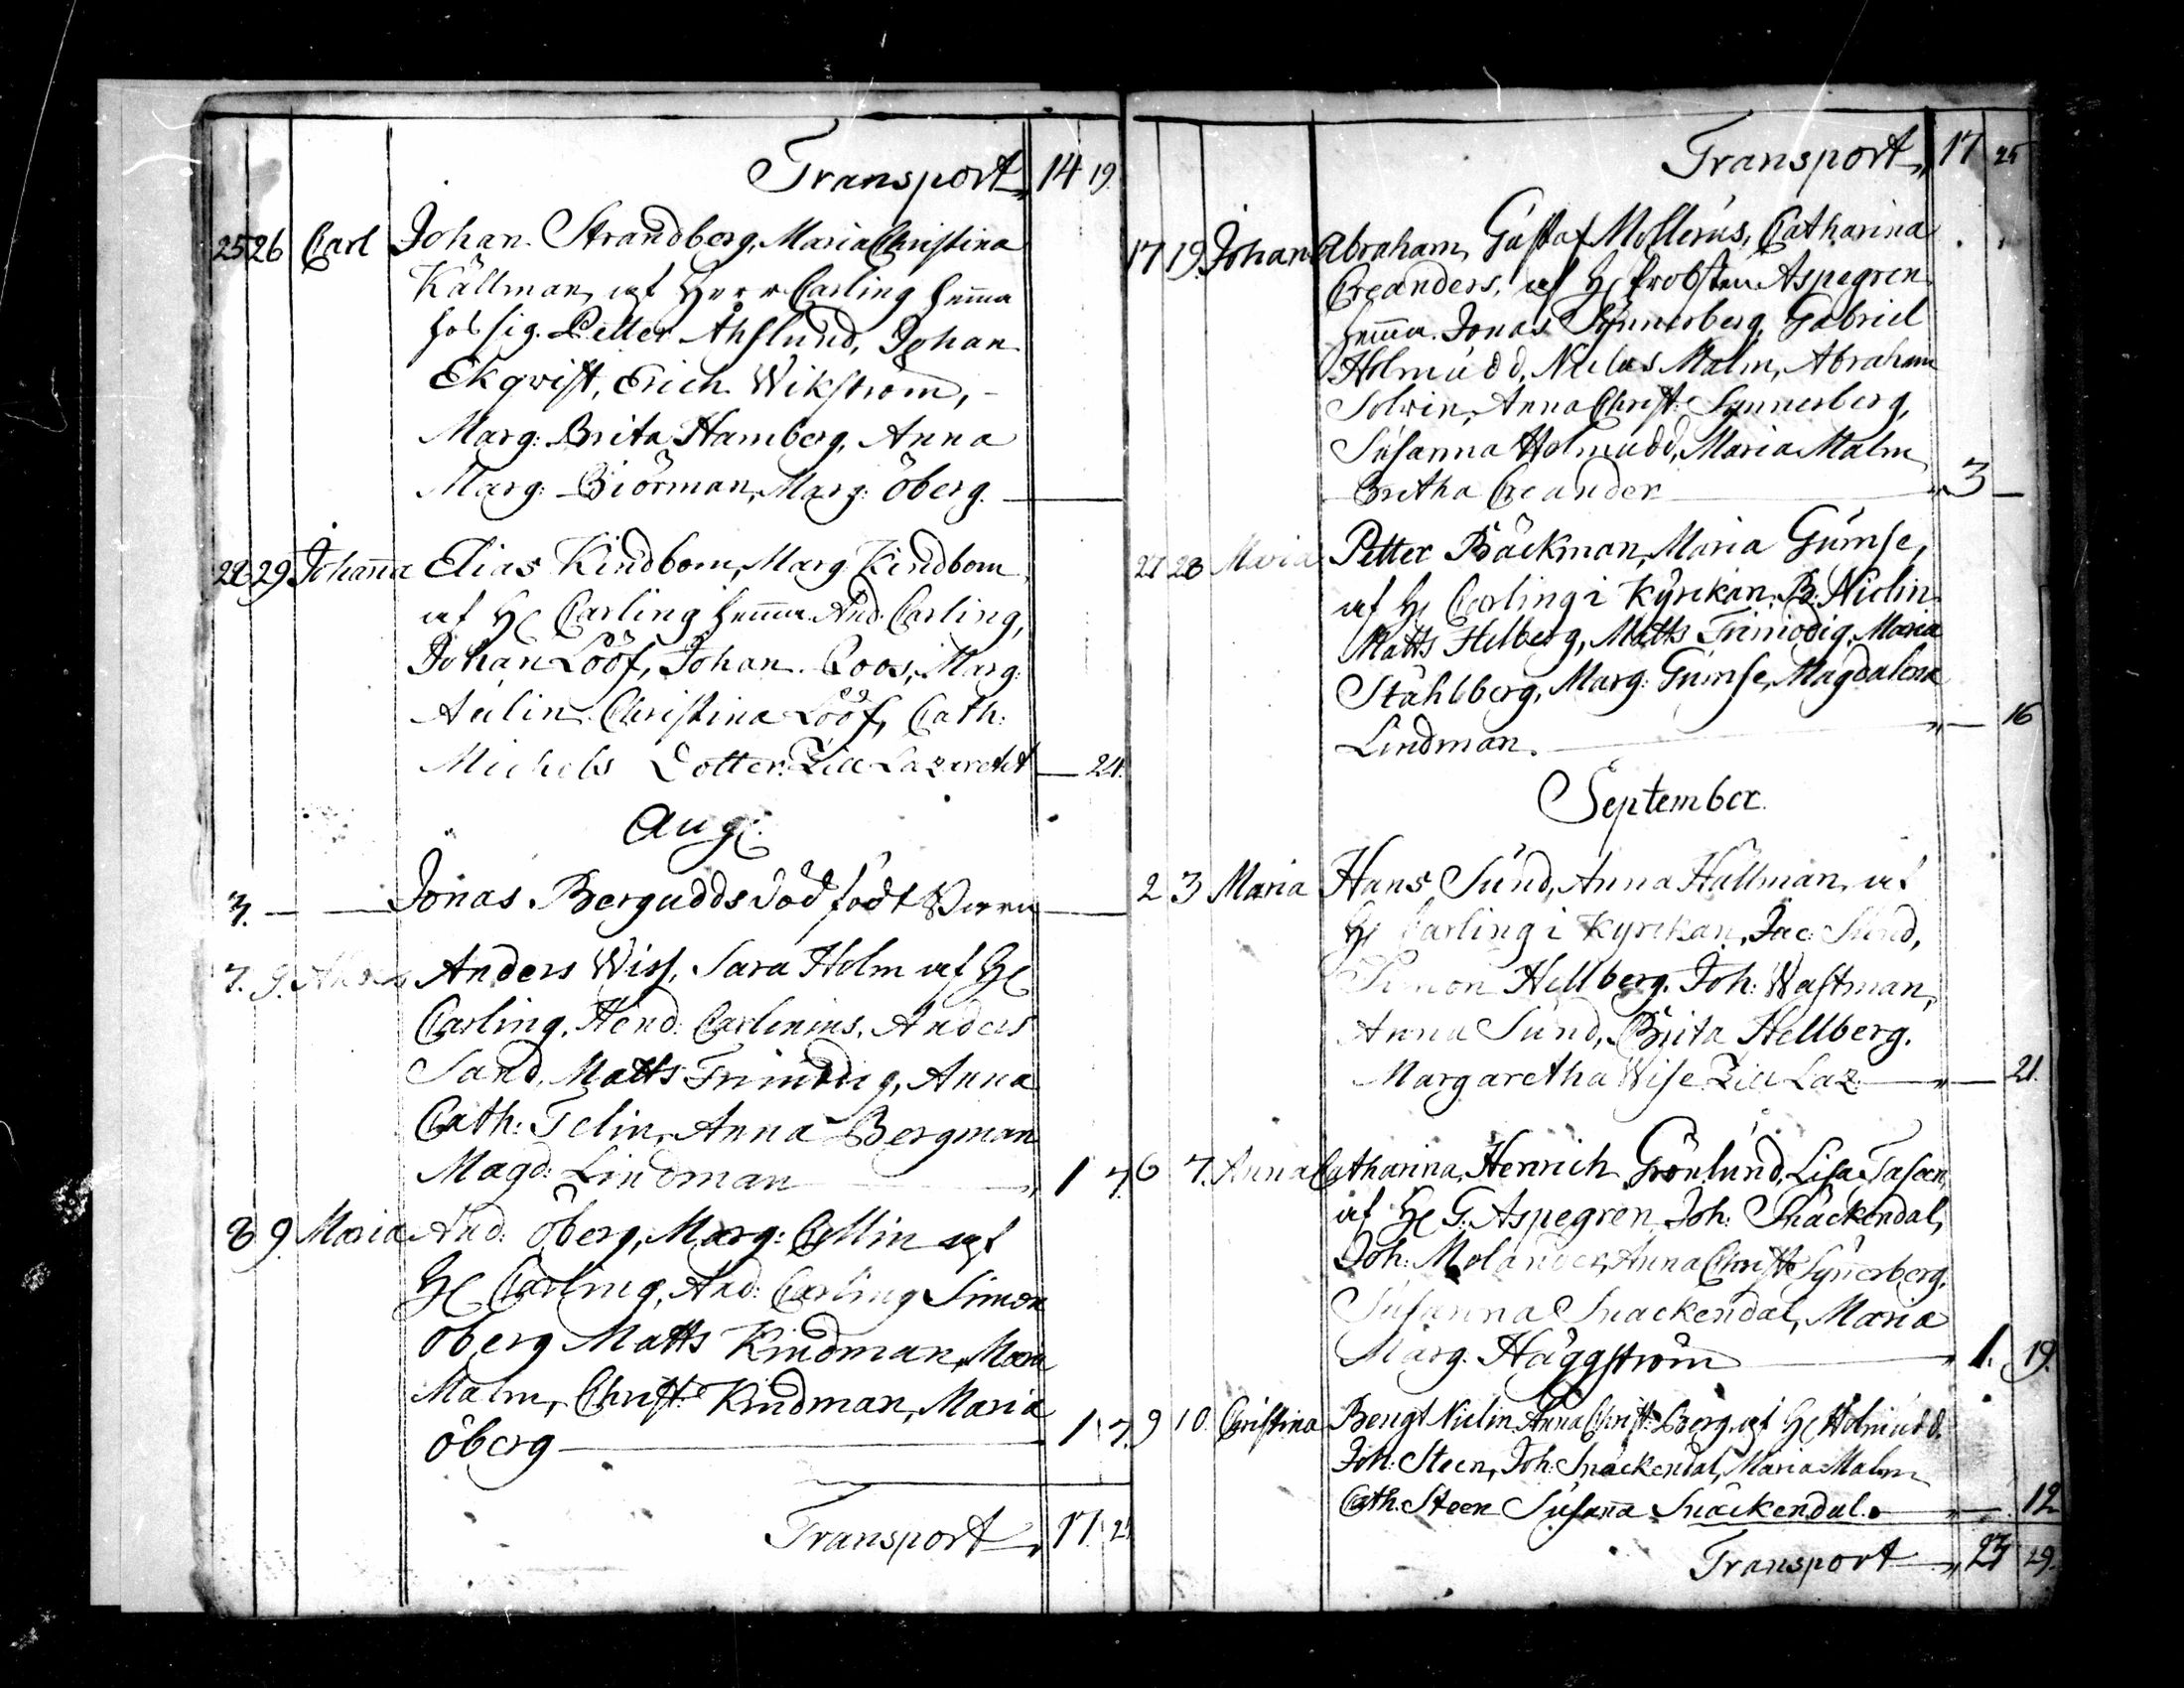 Transport 14 19.
25 26 Carl Johan Strandberg, Maria Christina
Källman, af Herr Carling hema
hos sig. Petter Åhslund, Johan
Ekqvist, Erich Wikström, -
Marg: Brita Hamberg, Anna
Marg: Biörman, Marg: Öberg.
29 Johanna Elias Kindbom, Marg: Kindbom
af H Carling hema And. Carling,
Johan Lööf, Johan Roos, Marg:
Aulin Christina Lööf, Cath:
Michels Dotter. Till Lazarettet 24.
Aug:
3. Jonas Bergudds död födt Barn
7. 9. Anders Wiss, Sara Holm af H
Carling, Hend: Carlenius, Anders
Sand, Matts Trimodig, Anna
Cath: Telin, Anna Bergman
Magd: Lindman 1 7.
8 9. Maria And: Öberg, Marg: Collin af
H Carling, And: Carling Simon
Öberg Matts Kindman, Maria
Malm, Christ: Kindman, Maria
Öberg 1 7.
Transport 17. 25
Transport 17 25
17 19. Johan Abraham, Gustaf Mollerus, Catharina
Creanders, af H Probsten Aspegren
hema. Jonas Synnerberg, Gabriel
Holmudd, Niclas Malm, Abraham
Solvin, Anna Christ: Synnerberg,
Susanna Holmudd, Maria Malm
Bretha Creander 3
27 28 Maria Petter Bäckman, Maria Gumse,
af H Carling i Kyrckan. B: Niclin
Matts Helberg, Matts Trimodig, Maria
Ståhlberg, Marg: Gumse, Magdalena
Lindman. 16
September.
2 3 Maria Hans Sund, Anna Hällman, af
H Carling i Kyrckan, Jac: Sund,
Simon Hellberg. Joh: Wastman,
Anna Sund, Brita Hellberg.
Margaretha Wise. Till Laz: 21.
6 7. Anna Catharina, Henrich Grönlund, Lisa
af H G: Aspegren, Joh: Snäckendal,
Joh: Molander, Anna Christ: Synerberg,
Susanna Snackendal, Maria
Marg. Häggström 1. 19.
9 10. Christina Bengt Niclin Anna Christ: Öberg, af H Holmudd.
Joh: Steen, Joh: Snäckendal, Maria Malm
Cath: Steen Susana Snäckendal. 12
Transport 23 29.